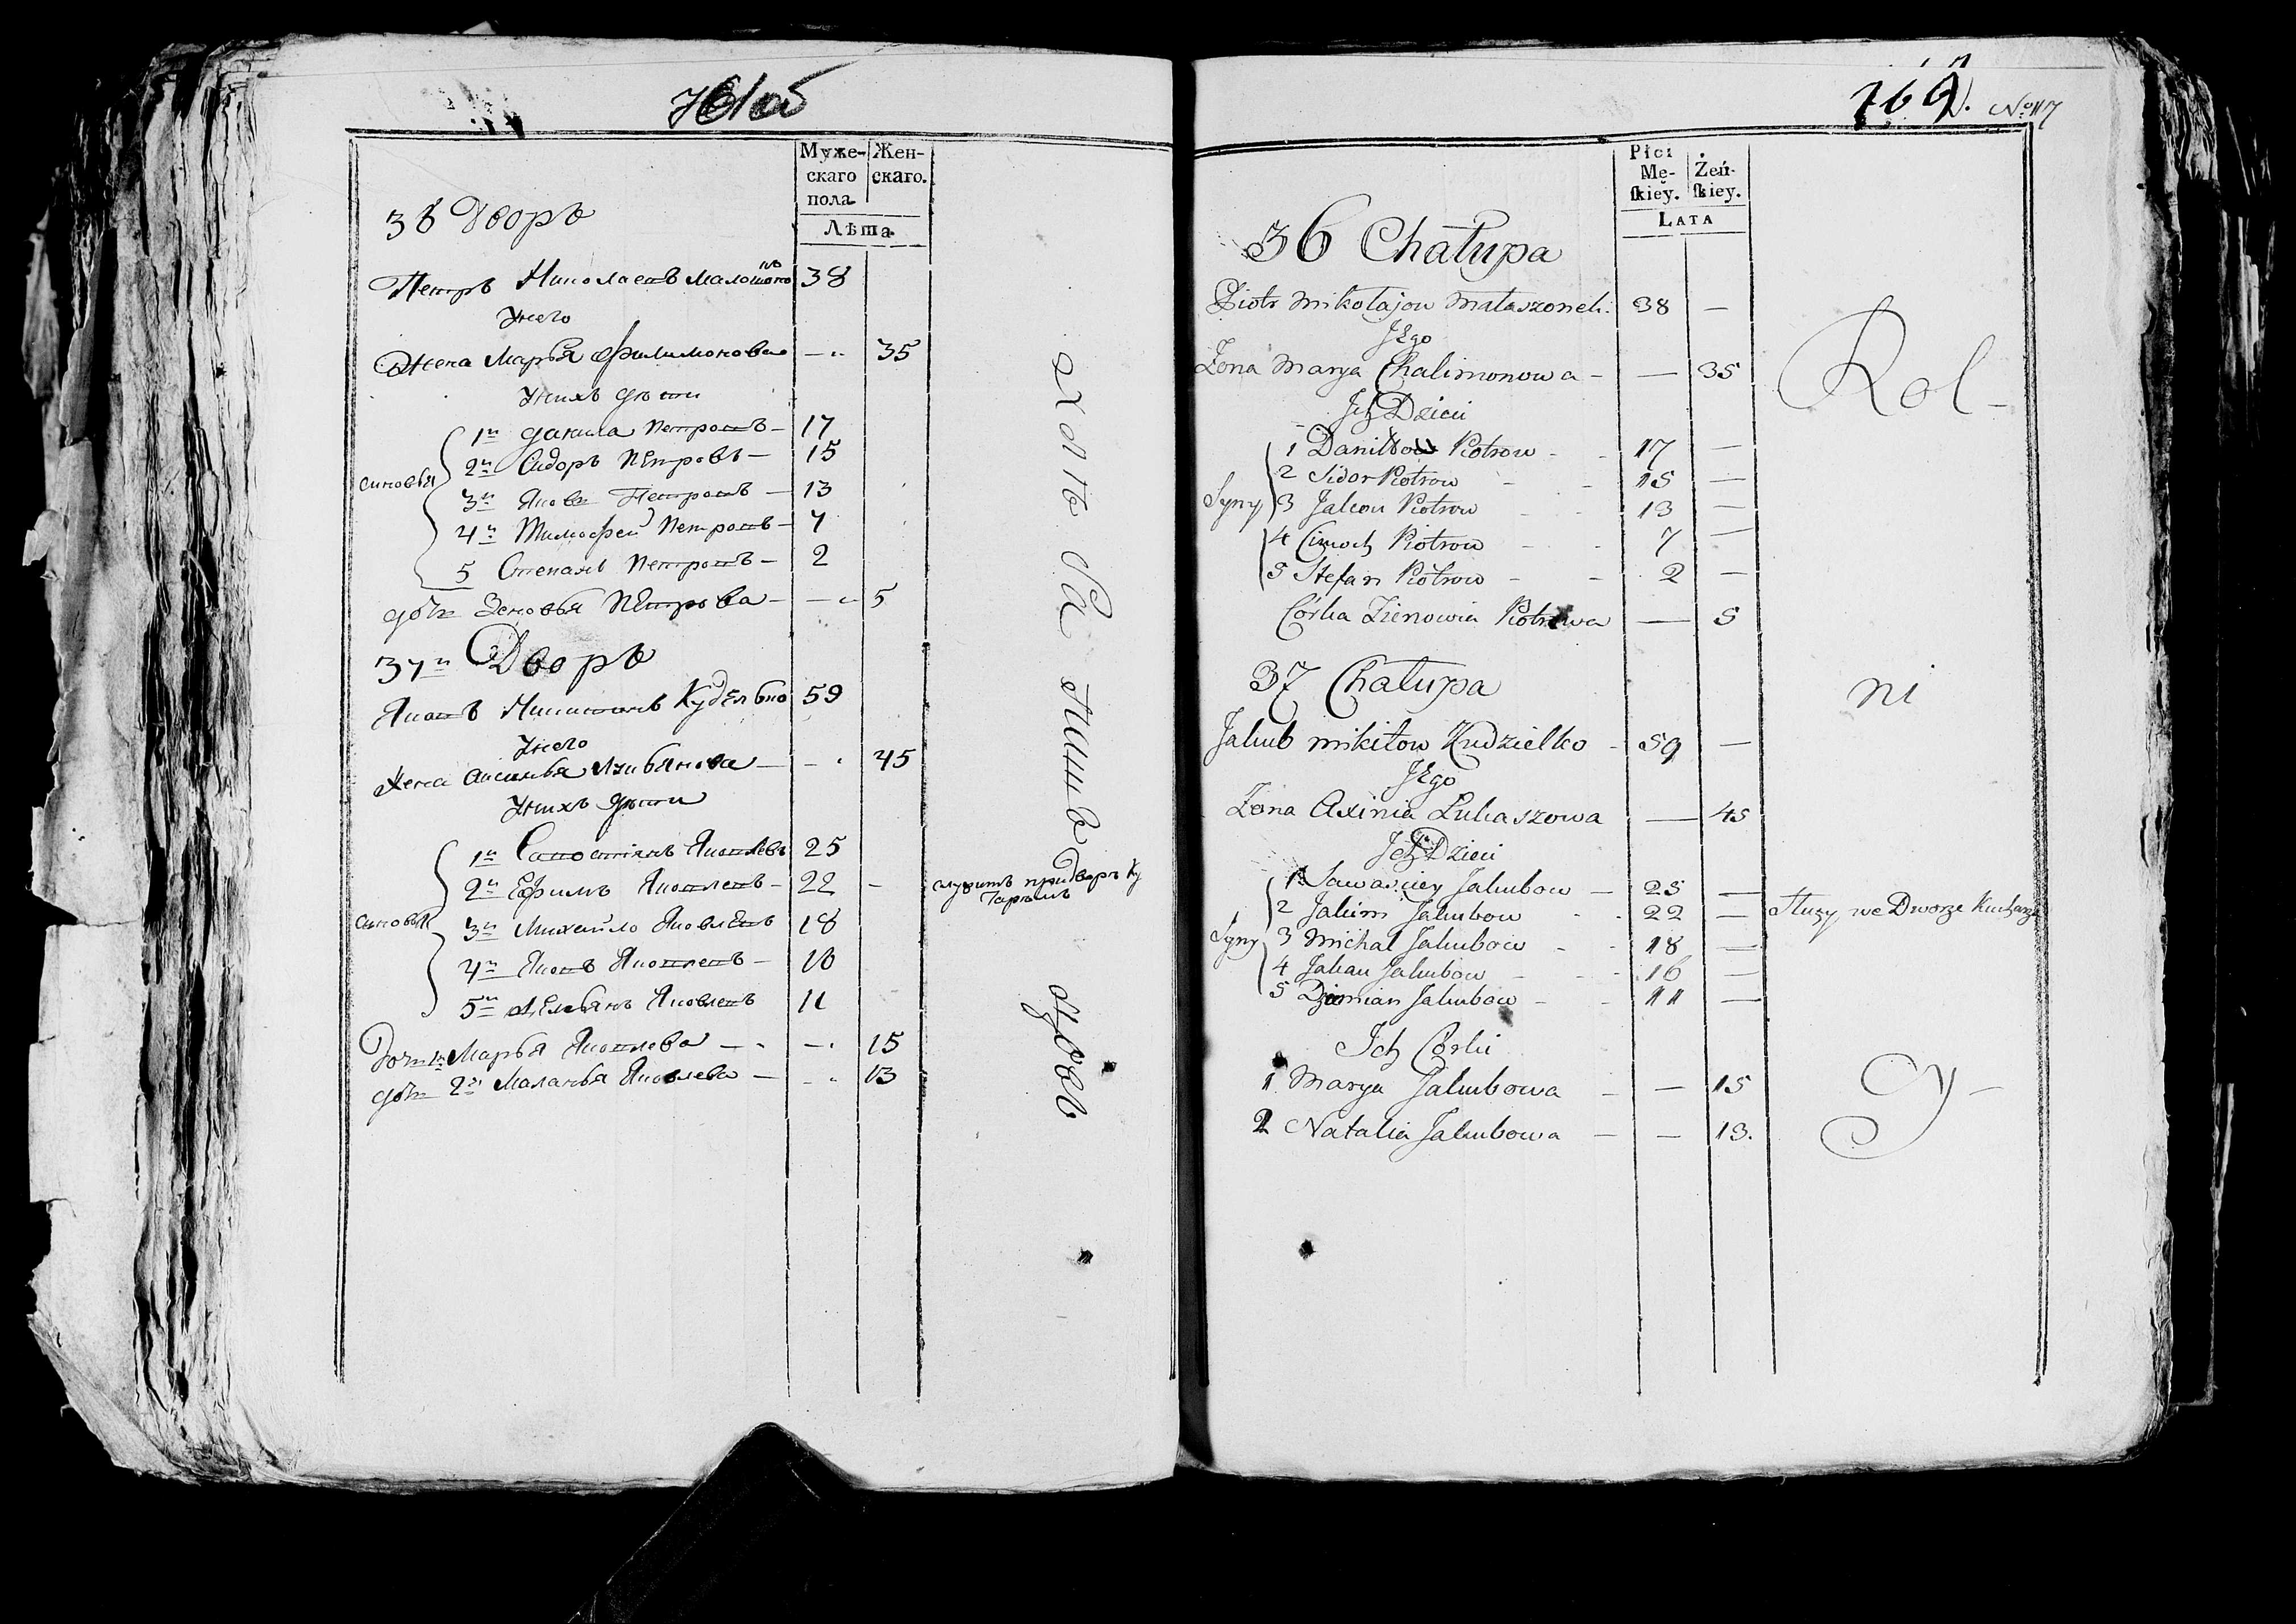 761об
Муже-
скаго
пола
Жен-
скаго.
Лѣта
36 Дворъ
Петръ Николаевъ Малошонокъ 38
У него
Жена Марья Филимонова — 35
У нихъ дѣти
синовья
1й Данила Петровъ — 17
2й Сидоръ Петровъ — 15
3й Яковъ Петровъ — 13
4й Тимофей Петровъ — 7
5 Степанъ Петровъ — 2
дочь Зеновья Петрова — — 5
37й Дворъ
Яковъ Никитинъ Кудѣлько 59
У него
Жена Аксинья — 45
У нихъ дѣти
синовья
1й Савостіянъ Яковлевъ 25
2й Ефимъ Яковлевъ — 22 — служитъ при дворѣ Ку
харомъ
3й Михайло Яковлевъ 18
4й Яковъ Яковлевъ — 16
5й Демьянъ Яковлевъ 11
Дочь 1я Марья Яковлева — — 15
дочь 2я Маланья Яковлева — — 13
769. No 117
Płci
Mę-
skiey.
Żeń-
skiey.
LATA
36 Chałupa
Piotr Mikołajow Małaszonek. 38 —
Jego
Żona Marya Chalimonowa — — 35
Ich Dzieci
Syny
1 Daniło Piotrow - 17 —
2 Sidor Piotrow - 15 —
3 Jakow Piotrow - 13 —
4 Cimoch Piotrow - 7 —
5 Stefan Piotrow - 2 —
Córka Zienowia Piotrowa — 5
37 Chałupa
Jakub Mikitow Kudzielko - 59 —
Jego
Żona Axinia Łukaszowa — 45
Ich Dzieci
Syny
1 Sawasciey Jakubow — 25 —
2 Jakim Jakubow - 22 — Służy we Dworze Kucharzem
3 Michał Jakubow - 18 —
4 Jakau Jakubow - 16 —
5 Dziemian Jakubow - 11 —
Ich Córki
1 Marya Jakubowa — — 15
2 Natalia Jakubowa — — 13.
Rol-
ni
cy-